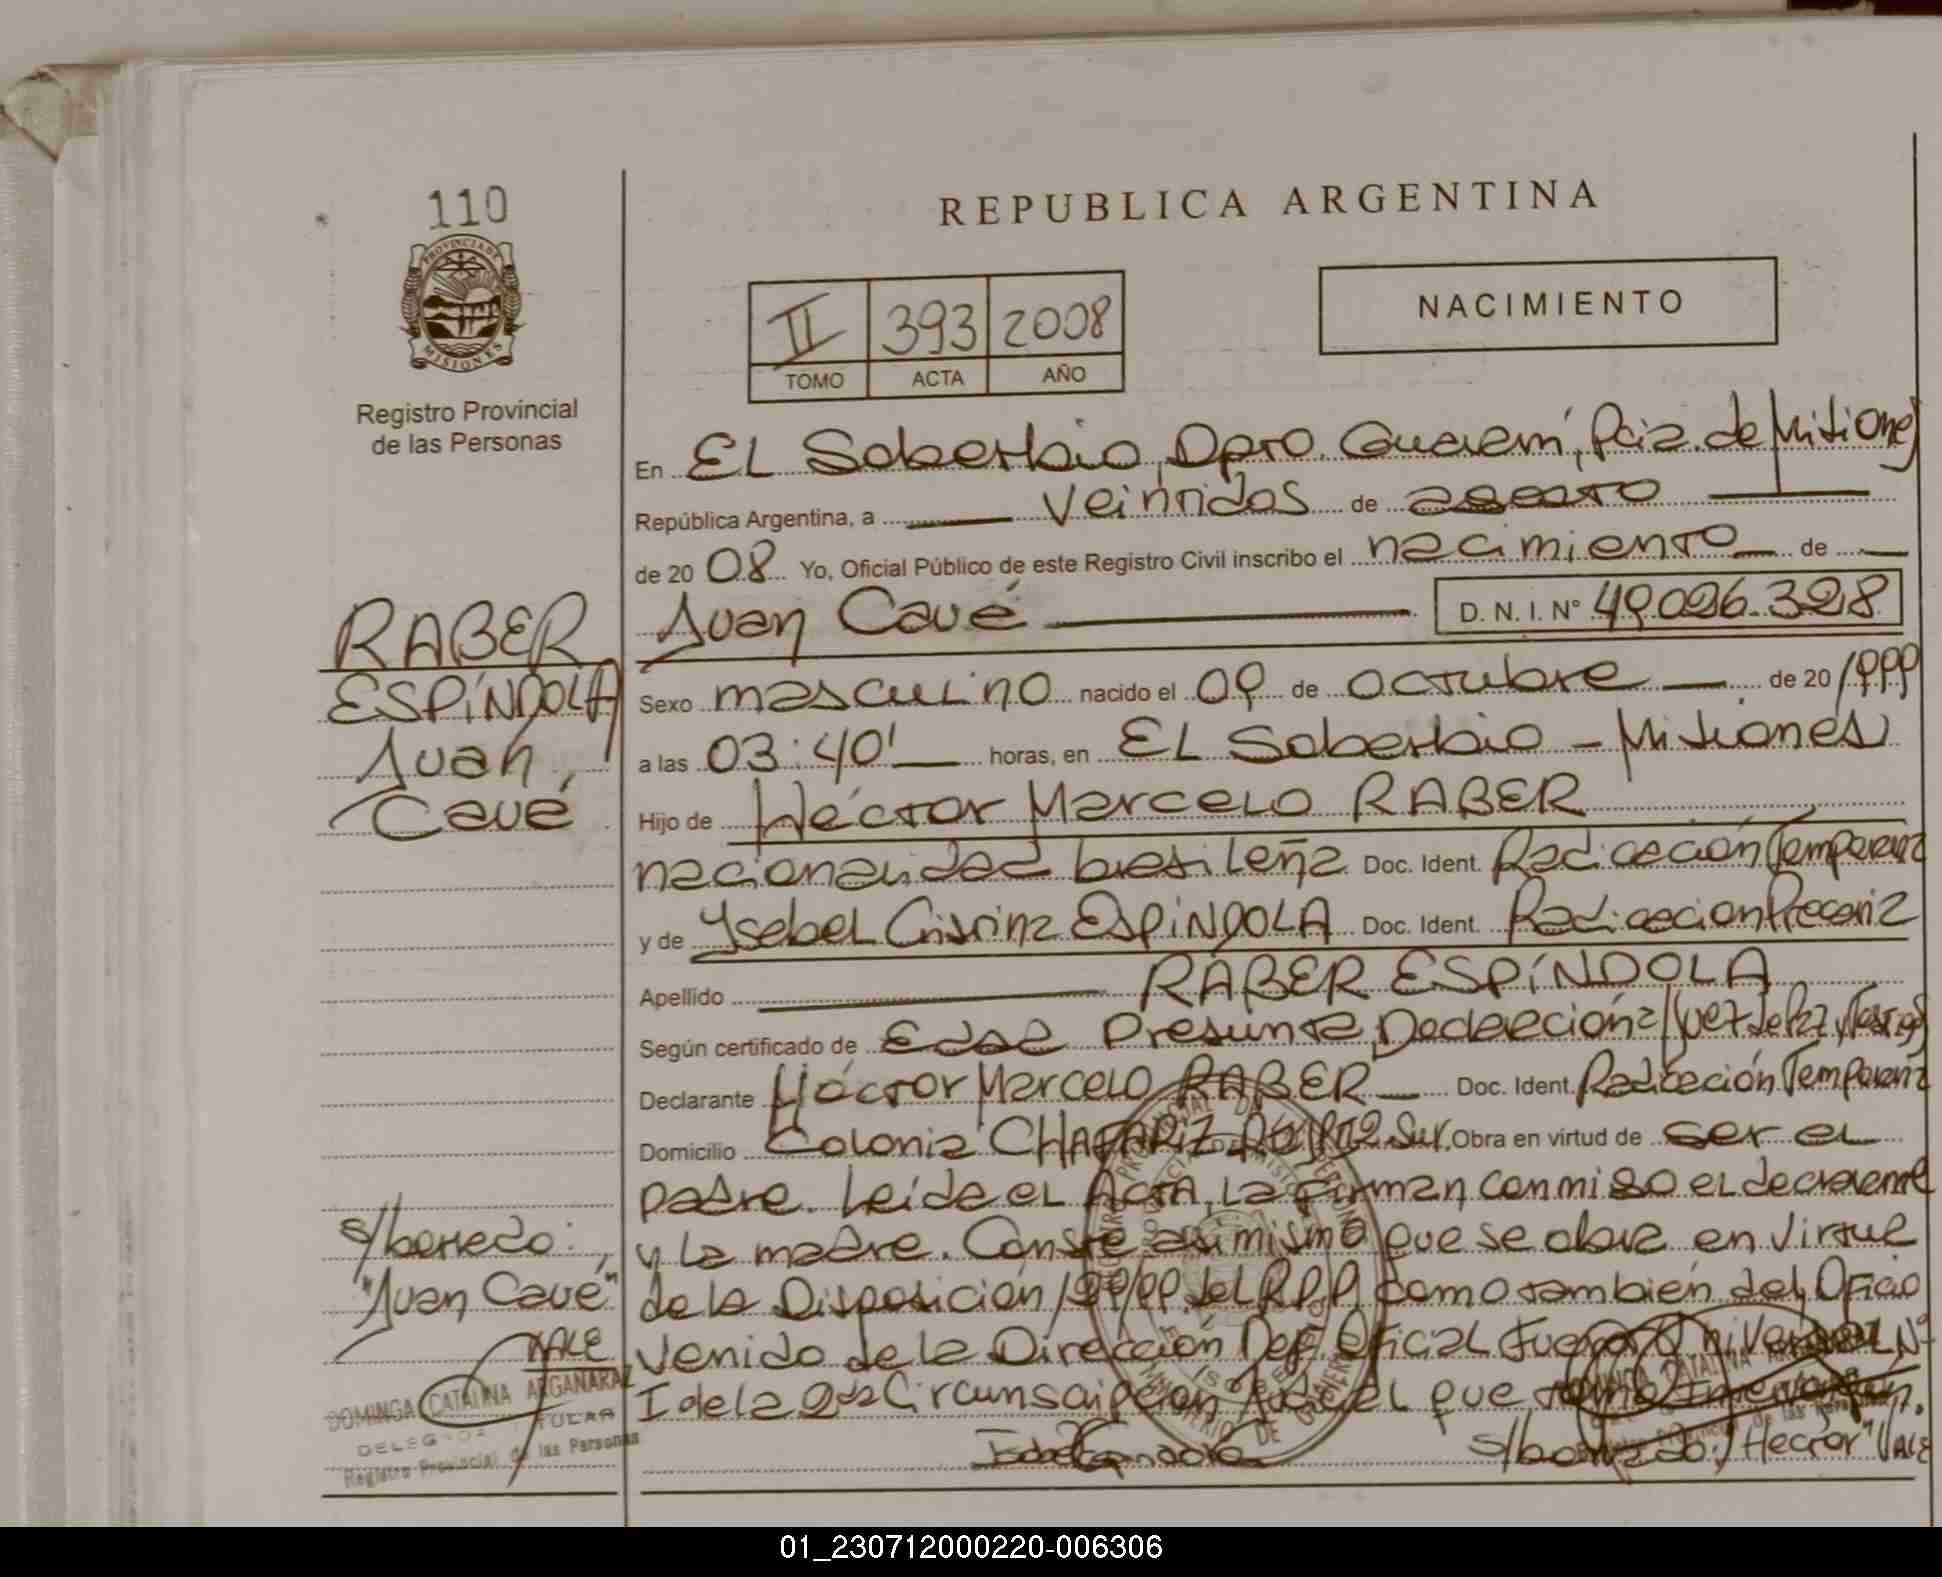 110
PROVINCIA DE
MISIONES
Registro Provincial
de las Personas
REPUBLICA ARGENTINA
II 393 2008
TOMO ACTA AÑO
NACIMIENTO
En EL Soberbio, Dpto. Guaraní, Pcia. de Misiones
República Argentina, a veintidos de agosto
de 2008 Yo, Oficial Público de este Registro Civil inscribo el nacimiento de
Juan Cavé D. N. I. N° 49.026.328
Sexo masculino nacido el 09 de octubre de 20 1999
a las 03:40' horas, en EL Soberbio - Misiones
Hijo de Héctor Marcelo RABER
nacionalidad brasileña Doc. Ident. Radicación Temporaria
y de Ysabel Cristina ESPÍNDOLA Doc. Ident. Radicacion Precaria
Apellido RABER ESPÍNDOLA
Según certificado de Edad Presunta, Declaración a/Juez de Paz, y Testigos
Declarante Héctor Marcelo RABER Doc. Ident. Radicación Temporaria
Domicilio Colonia CHAFARIZ Obra en virtud de ser el
padre. Leída el Acta, la firman conmigo el declarante
y la madre. Conste asimismo que se obra en virtud
de la Disposición 199/99 del R.P.P, como también del Oficio
venido de la Dirección Def. Oficial Fuero Universal N°
I de la 2da Circunscripción Judicial que
s/borrado: "Hector" VALE
RABER
ESPÍNDOLA
Juan,
Cavé
s/borrado:
"Juan Cavé"
VALE
DOMINGA CATALINA ARGAÑARAZ
DELEGADA TITULAR
Registro Provincial de las Personas
01_230712000220-006306